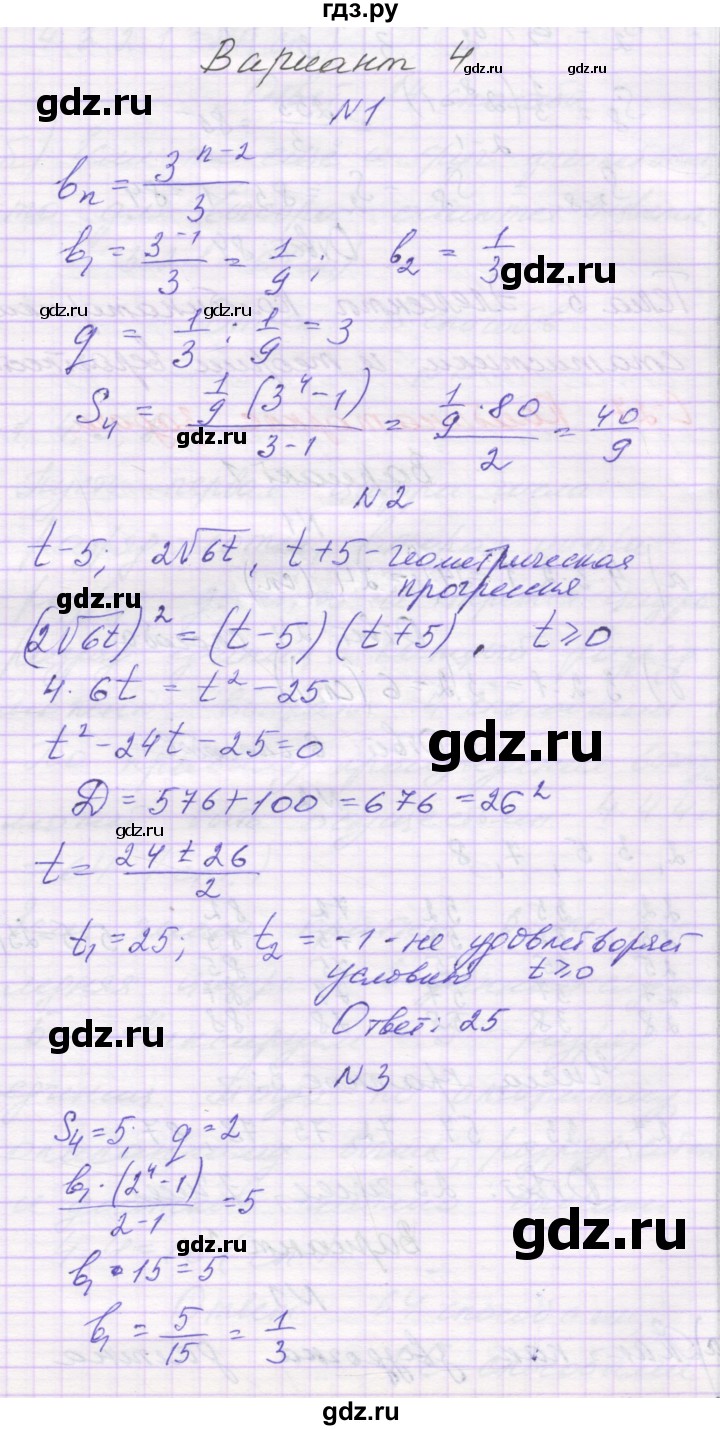 гдз.ру
Вариант 4
gdz.ru
gdz.ru
gdz.ru
N1
bₙ = 3ⁿ⁻² / 3
b₁ = 3⁻¹ / 3 = 1/9 ; b₂ = 1/3
gdz.ru
gdz.ru
gdz.ru
q = 1/3 : 1/9 = 3
S₄ = 1/9 (3⁴ - 1) / 3-1 = 1/9 · 80 / 2 = 40/9
gdz.ru
N2
t-5; 2√6t, t+5 - геометрическая
прогрессия
gdz.ru
(2√6t)² = (t-5)(t+5), t ≥ 0
4 · 6t = t² - 25
t² - 24t - 25 = 0
gdz.ru
Д = 576 + 100 = 676 = 26²
gdz.ru
t = 24 ± 26 / 2
t₁ = 25; t₂ = -1 - не удовлетворяет
условию t ≥ 0
Ответ: 25
gdz.ru
N3
S₄ = 5; q = 2
b₁ · (2⁴ - 1) / 2-1 = 5
gdz.ru
gdz.ru
b₁ · 15 = 5
b₁ = 5/15 = 1/3
gdz.ru